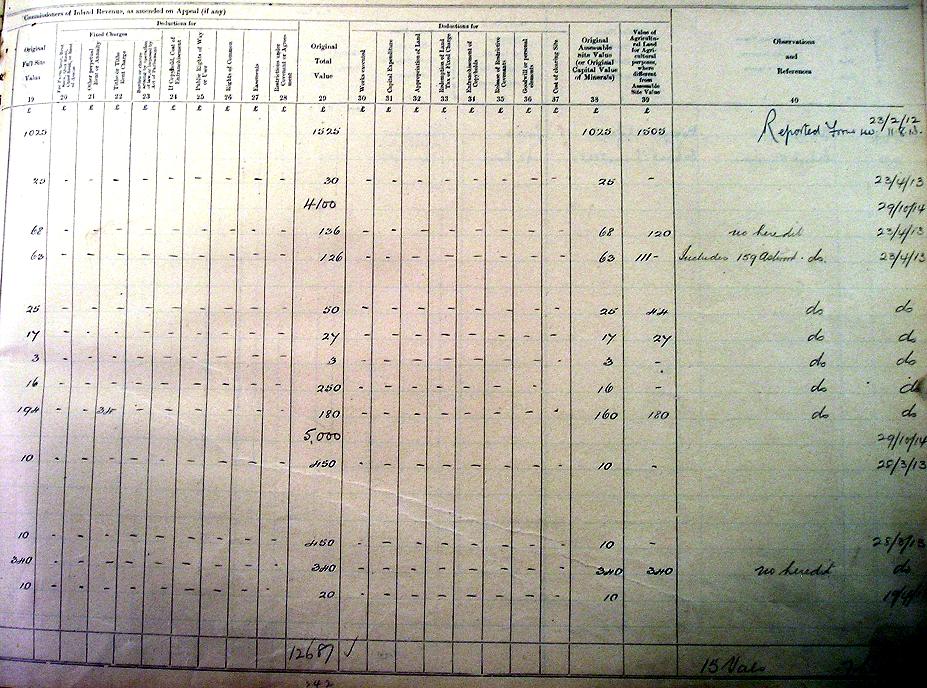 Commissioners of Inland Revenue, as amended on Appeal (if any)
Deductions for
Deductions for
Fixed Charges
Original Full Site Value
Other Perpetual Rent or Annuity
Tithe or Tithe Rent Charge
If Copyhold, Cost of Enfranchisement
Public Rights of Way or User
Rights of Common
Easements
Restrictions under Covenant or Agreement
Original Total Value
Works executed
Capital Expenditure
Appropriation of Land
Redemption of Land Tax or Fixed Charge
Enfranchisement of Copyholds
Release of Restrictive Covenants
Goodwill or personal elements
Cost of clearing Site
Original Assessable Site Value (or Original Capital Value of Minerals)
Value of Agricultural Land for Agricultural purposes, where different from Assessable Site Value
Observations and References
19 20 21 22 23 24 25 26 27 28 29 30 31 32 33 34 35 36 37 38 39 40
£ £ £ £ £ £ £ £ £ £ £ £ £ £ £ £ £ £ £ £ £
23/2/12
1025 1525 1025 1505 Reported Form no.
25 - - - - - - - - - 30 - - - - - - - - 25 - 23/4/13
4100 29/10/14
68 - - - - - - - - - 136 - - - - - - - - 68 120 no heredit 23/4/13
63 - - - - - - - - - 126 - - - - - - - - 63 111- Includes 159 do. 23/4/13
25 - - - - - - - - - 50 - - - - - - - - 25 44 do do
17 - - - - - - - - - 27 - - - - - - - - 17 27 do do
3 - - - - - - - - - 3 - - - - - - - - 3 - do do
16 - - - - - - - - - 250 - - - - - - - - 16 - do do
194 - - 34 - - - - - - 180 - - - - - - - - 160 180 do do
5,000 29/10/14
10 - - - - - - - - - 450 - - - - - - - - 10 - 28/3/13
10 - - - - - - - - - 450 - - - - - - - - 10 - 28/3/13
340 - - - - - - - - - 340 - - - - - - - - 340 340 no heredit do
10 - - - - - - - - - 20 - - - - - - - - 10
12687 ✓
15 Vals
242